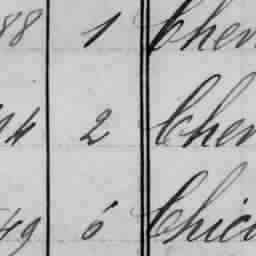 88 1 Cher
14 2 Cher
49 6 Chic